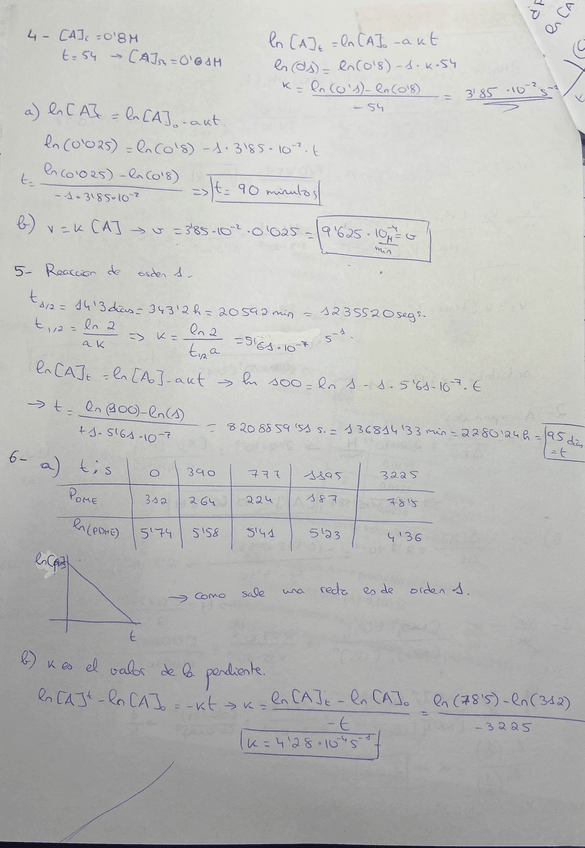 4 - [A]t = 0'8 M
t = 54 → [A]n = 0'01M
ln [A]t = ln [A]o - a k t
ln(0'1) = ln(0'8) - 1 · k · 54
k = (ln(0'1) - ln(0'8)) / -54 = 3'85 · 10⁻² s⁻¹
a) ln [A]t = ln [A]o - akt.
ln(0'025) = ln(0'8) - 1 · 3'85 · 10⁻² · t
t = (ln(0'025) - ln(0'8)) / (-1 · 3'85 · 10⁻²) => t = 90 minutos
b) v = k [A] → v = 3'85 · 10⁻² · 0'025 = 9'625 · 10⁻⁴ M/min = v
5 - Reaccion de orden 1.
t1/2 = 14'3 dias = 343'2 h = 20592 min = 1235520 segs.
t1/2 = ln 2 / a k => k = ln 2 / t1/2 a = 5'61 · 10⁻⁷ s⁻¹.
ln [A]t = ln [Ao] - akt → ln 100 = ln 1 - 1 · 5'61 · 10⁻⁷ · t
→ t = (ln(100) - ln(1)) / (+1 · 5'61 · 10⁻⁷) = 8208859'51 s. = 136814'33 min = 2280'24 h = 95 dias = t
6 - a) t; s 0 390 777 1195 3225
PDME 312 264 224 187 78'5
ln(PDME) 5'74 5'58 5'41 5'23 4'36
t
→ como sale una recta es de orden 1.
b) k es el valor de la pendiente.
ln [A]t - ln [A]o = -kt → k = (ln [A]t - ln [A]o) / -t = (ln(78'5) - ln(312)) / -3225
k = 4'28 · 10⁻⁴ s⁻¹